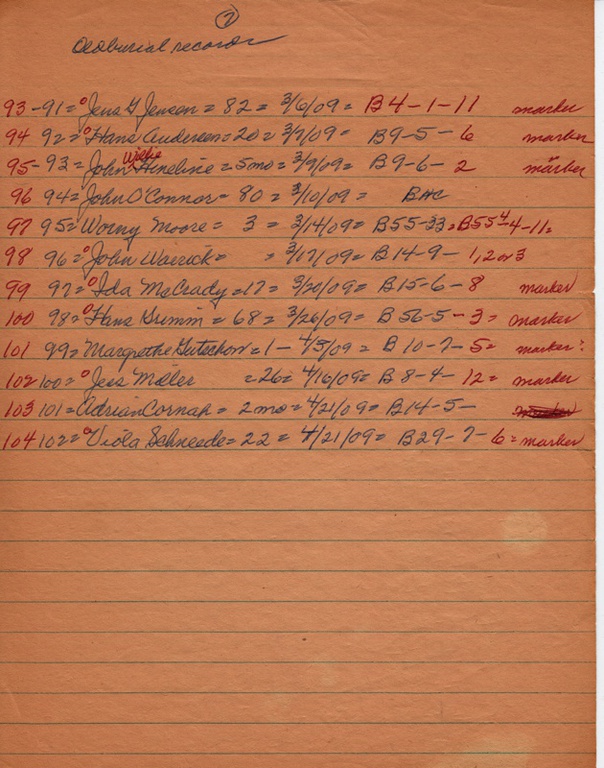 7
Old burial records
93 - 91 = ° Jens G Jensen = 82 = 3/6/09 = B4-1-11 marker
94 92 = ° Hans Andersen = 20 = 3/9/09 = B9-5-6 marker
Willie
95 - 93 = John Hineline = 5mo = 3/9/09 = B9-6-2 marker
96 94 = John O'Connor = 80 = 3/10/09 = BHC
97 95 = Worny Moore = 3 = 3/14/09 = B55-33 = B55-4-11 =
98 96 = ° John Warrick = = 3/17/09 = B14-9- 1, 2 or 3
99 97 = ° Ida McCrady = 17 = 3/20/09 = B15-6-8 marker
100 98 = ° Hans Grimm = 68 = 3/26/09 = B56-5-3 = marker
101 99 = Margrethe = 1 - 4/5/09 = B10-7-5 = marker?
102 100 = ° Jess Miller = 26 = 4/16/09 = B8-4-12 = marker
103 101 = Adrian Cornah = 2mo = 4/21/09 = B14-5-
104 102 = ° Viola Schneede = 22 = 4/21/09 = B29-7-6 = marker